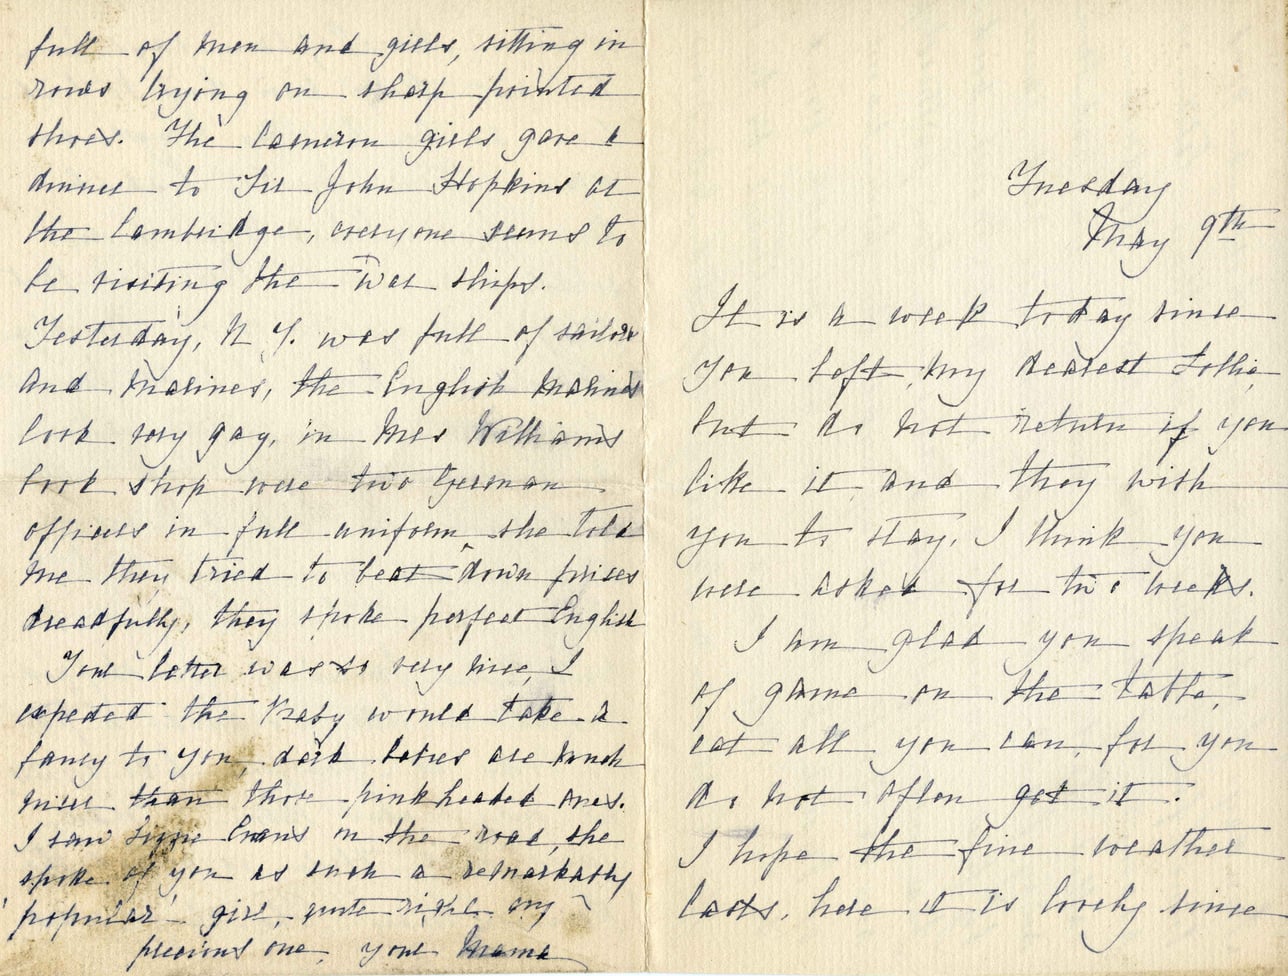 Tuesday
May 9th
It is a week today since
you left, my dearest Lollie,
but do not return if you
like it and they wish
you to stay, I think you
were asked for two weeks.
I am glad you speak
of game on the table,
eat all you can, for you
do not often get it.
I hope the fine weather
lasts, here it is lovely since
full of men and girls, sitting in
rows trying on sharp pointed
shoes. The Cameron girls gave a
dinner to Sir John Hopkins at
the Cambridge, everyone seems to
be visiting the war ships.
Yesterday, N.Y. was full of sailors
and marines, the English marines
look very gay, in Mrs Williams
book shop were two German
officers in full uniform, she told
me they tried to beat down prices
dreadfully, they spoke perfect English
Your letter was so very nice, I
expected the Baby would take a
fancy to you, dark babies are much
nicer than those pinkheaded ones.
I saw Lizzie Evans on the road, she
spoke of you as such a remarkably
popular girl, quite right my
precious one, your Mama